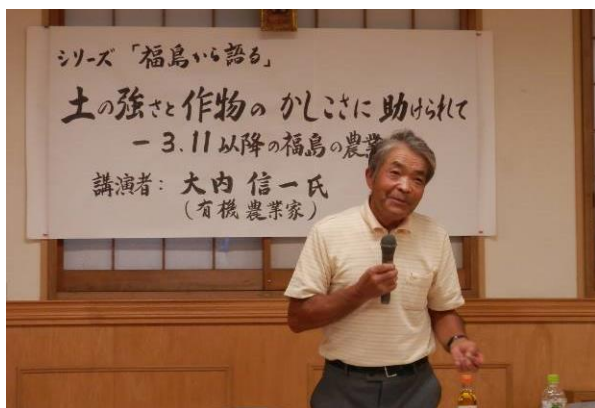 シリーズ 「福島から語る」
土の強さと作物の かしこさに 助けられて
－ 3.11 以降の福島の農業
講演者： 大内 信一氏
（有機農業家）